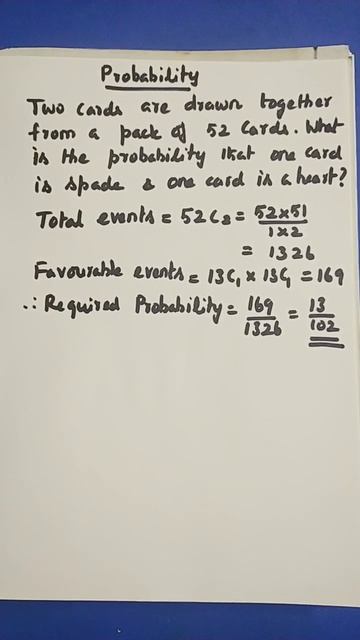 Probability
Two cards are drawn together
from a pack of 52 cards. What
is the probability that one card
is spade & one card is a heart?
Total events = 52C2 = 52×51
1×2
= 1326
Favourable events = 13C1 × 13C1 = 169
∴ Required Probability = 169/1326 = 13/102